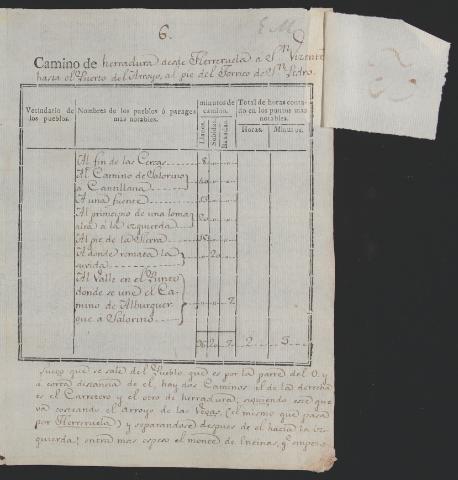 6.
E M
9
Camino de herradura desde Herreruela a Sn. Vizente
hasta el Puerto del Arroyo, al pie del Torrico de Sn. Pedro.
Vecindario de los pueblos.
Nombres de los pueblos ó parages mas notables.
minutos de camino.
Total de horas contado en los puntos mas notables.
Llanos.
Subidas.
Baxadas.
Horas.
Minutos.
Al fin de las Cercas 8
Al Camino de Salorino
a Cantillana
A una fuente
Al principio de una loma
alta a la izquierda
Al pie de la Sierra
A donde remata la
suvida 20
Al Valle en el Punto
donde se une el Ca-
mino de Alburquer
que a Salorino 7
96 20 7 2 3
Luego que se sale del Pueblo que es por la parte del O. y
a corta distancia de el, hay dos Caminos el de la derecha
es el Carretero y el otro de herradura, siguiendo este que
va costeando el Arroyo de las Vegas, (el mismo que pasa
por Herreruela) y separandose despues de el hacia la iz-
quierda; entra mas espeso el monte de Encinas, y empie-